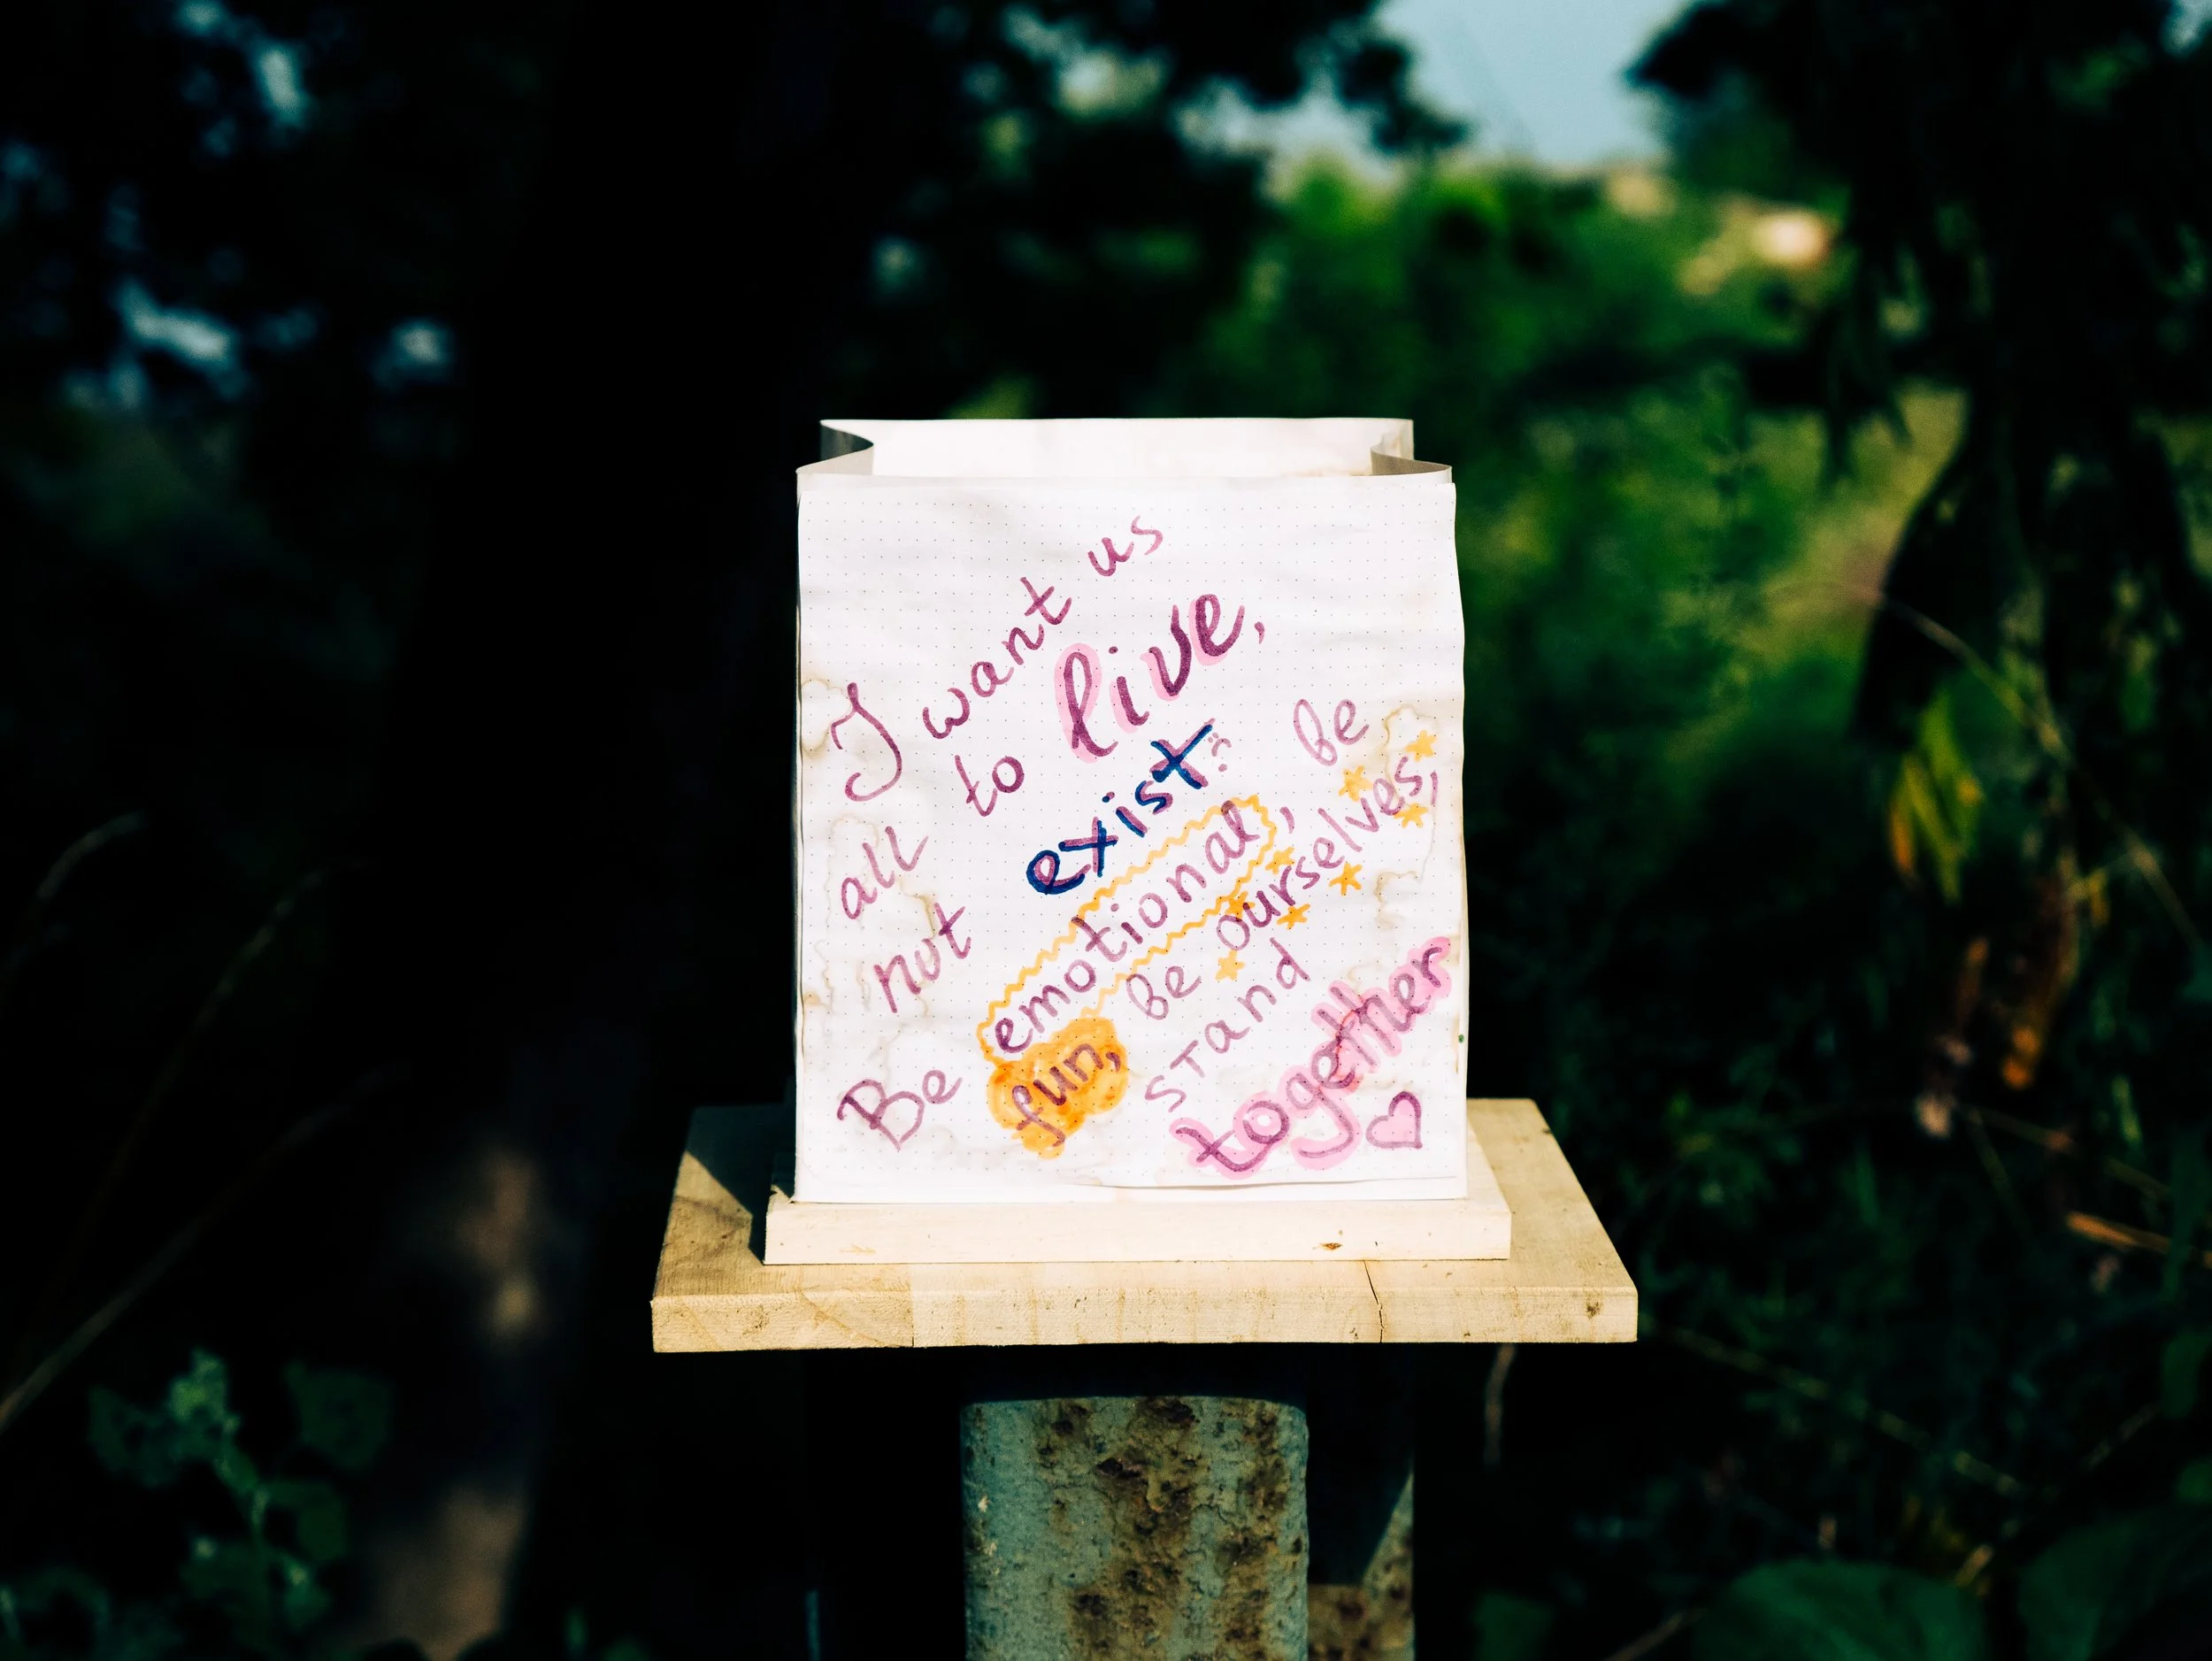 I want us
all to live,
not exist :(
Be emotional, be
fun, be ourselves,
stand
together ♡